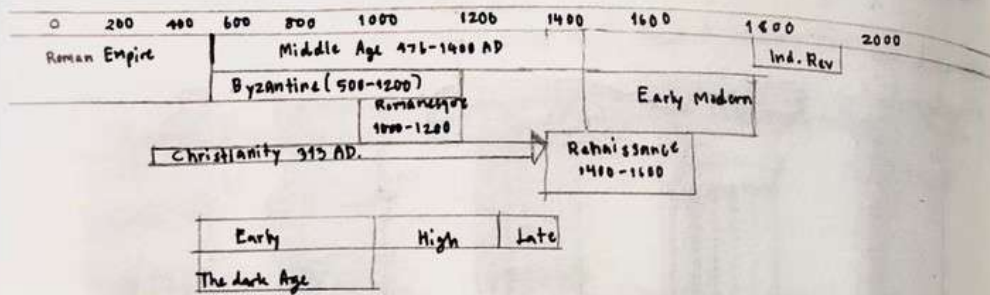 0 200 400 600 800 1000 1200 1400 1600 1800 2000
Roman Empire Middle Age 476-1400 AD Ind. Rev
Byzantine (500-1200) Early Modern
Romanesque
1000-1200
Christianity 313 AD. Renaissance
1400-1600
Early High Late
The dark Age